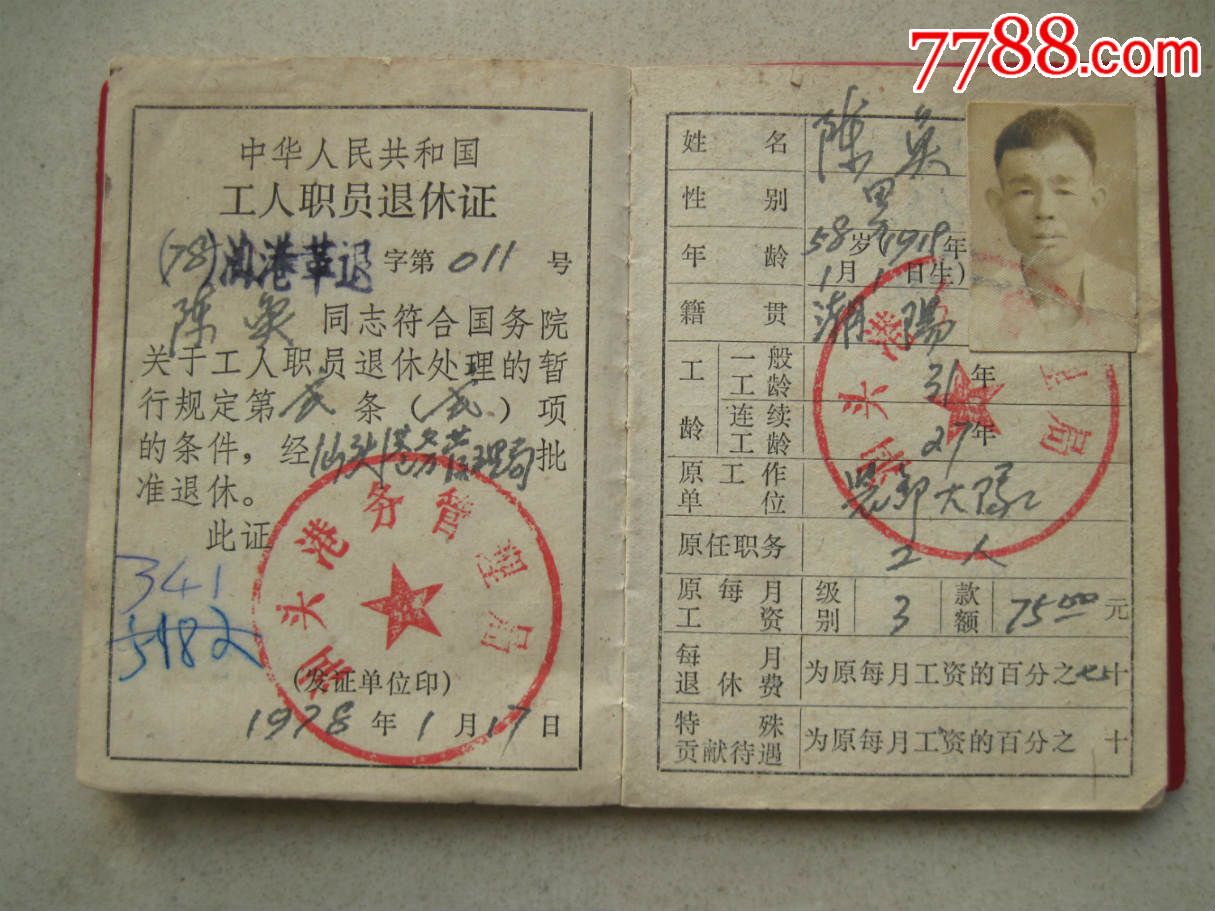 7788.com
中华人民共和国
工人职员退休证
(78)汕港革退 字第 011 号
陈 同志符合国务院
关于工人职员退休处理的暂
行规定第 弍 条（弍）项
的条件，经汕头港务管理局批
准退休。
此证
341
5982
汕头港务管理局
(发证单位印)
1978 年 1 月 17 日
姓名 陈
性别 男
年龄 58 岁(1919年
1月1日生)
籍贯 潮陽
工龄 一般工龄 31 年
连续工龄 27 年
原工作单位 大隊
原任职务 工人
原每月工资 级别 3 款额 75.00 元
每月退休费 为原每月工资的百分之七十
特殊贡献待遇 为原每月工资的百分之 十
汕头港 理局